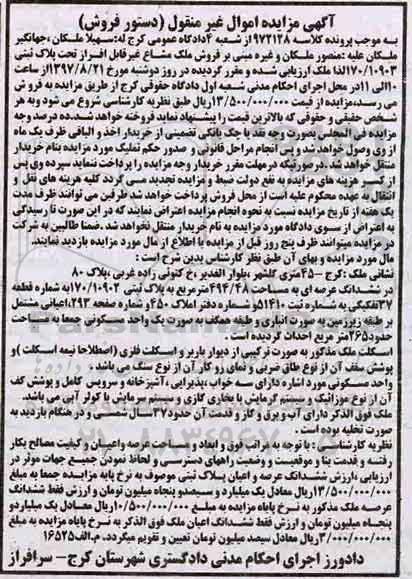 آگهی مزایده اموال غیر منقول (دستور فروش)
به موجب پرونده کلاسه ۹۷۲۱۲۸ از شعبه ۴ دادگاه عمومی کرج له:سهیلا ملکان ،جهانگیر
ملکان علیه:منصور ملکان و غیره مبنی بر فروش ملک مشاع غیرقابل افراز تحت پلاک ثبتی
۱۷۰/۱۰۹۰۳لذا ملک ارزیابی شده و مقرر گردیده در روز دوشنبه مورخ ۱۳۹۷/۸/۲۱از ساعت
۱۰الی ۱۱در محل اجرای احکام مدنی شعبه اول دادگاه حقوقی کرج از طریق مزایده به فروش
می رسد،مزایده از قیمت ۱۳/۵۰۰/۰۰۰/۰۰۰ریال طبق نظریه کارشناسی شروع می شود و به هر
شخص حقیقی و حقوقی که بالاترین قیمت را پیشنهاد نماید فروخته خواهد شد.ده درصد وجه
مزایده فی المجلس بصورت وجه نقد یا چک بانکی تضمینی از خریدار اخذ و الباقی ظرف یک ماه
از وی وصول خواهد شد و پس انجام مراحل قانونی و صدور حکم تملیک مورد مزایده بنام خریدار
منتقل خواهد شد.درصورتیکه درمهلت مقرر خریدار وجه مزایده را پرداخت ننماید سپرده وی پس
از کسر هزینه های مزایده به نفع دولت ضبط و مزایده تجدید می گردد کلیه هزینه های نقل و
انتقال به عهده محکوم علیه است از محل فروش پرداخت خواهد شد.طرفین می توانند ظرف مدت
یک هفته از تاریخ مزایده نسبت به نحوه انجام مزایده اعتراض نمایند که در این صورت تا رسیدگی
به اعتراض از سوی دادگاه مورد مزایده به نام خریدار منتقل نخواهد شد.ضمنا طالبین به شرکت
در مزایده میتوانند ظرف پنج روز قبل از مزایده با اطلاع از مال مورد مزایده بازدید نمایند.
مال مورد مزایده و بهای آن طبق نظر کارشناس بدین شرح است :
نشانی ملک :کرج -۴۵متری گلشهر ،بلوار الغدیر ،خ کتوئی زاده غربی ،پلاک ۸۰
در ششدانگ عرصه ای به مساحت ۴۹۴/۴۸ مترمربع به پلاک ثبتی ۱۷۰/۱۰۹۰۲به شماره قطعه
۳۷تفکیکی به شماره ثبت ۵۱۴۱۰و شماره دفتر املاک ۴۵۰و شماره صفحه ۲۹۳،اعیانی مشتمل
بر طبقه زیرزمین به صورت انباری و طبقه همکف به صورت یک واحد مسکونی جمعا به مساحت
حدود۲۶۵متر مربع احداث گردیده است .
اسکلت ملک مذکور به صورت ترکیبی از دیوار باربر و اسکلت فلزی (اصطلاحا نیمه اسکلت )و
پوشش سقف آن از نوع طاق ضربی و نمای رو کار آن از نوع سنگ می باشد .
واحد مسکونی مورد اشاره دارای سه خواب ،پذیرایی،آشپزخانه و سرویس کامل و پوشش کف
آن از نوع موزائیک و سیستم گرمایش با بخاری گازی و سیستم سرمایش با کولر آبی می باشد.
ملک فوق الذکر دارای آب وبرق و گاز و قدمت آن حدود۳۷سال شمسی و در هنگام بازدید به
صورت تخلیه بوده است .
نظریه کارشناسی : با توجه به مراتب فوق و ابعاد و مساحت عرصه واعیان و کیفیت مصالح بکار
رفته و قدمت بنا و موقعیت و وضعیت راههای دسترسی و لحاظ نمودن جمیع جهات موثر در
ارزیابی ،ارزش ششدانگ عرصه و اعیان پلاک ثبتی موصوف به نرخ پایه مزایده جمعا به مبلغ
۱۳/۵۰۰/۰۰۰/۰۰۰ریال معادل یک میلیارد و سیصدو پنجاه میلیون تومان و ارزش فقط ششدانگ
عرصه ملک مذکور به نرخ پایاه مزایده به مبلغ ۱۰/۵۰۰/۰۰۰/۰۰۰ریال معادل یک میلیاردو
پنجاه میلیون تومان و ارزش فقط ششدانگ اعیان ملک فوق الذکر به نرخ پایاه مزایده به مبلغ
۳/۰۰۰/۰۰۰/۰۰۰ریال معادل سیصد میلیون تومان تعیین و تقویم میگردد. م.الف۱۶۵۲۵
دادورز اجرای احکام مدنی دادگستری شهرستان کرج- سرافراز